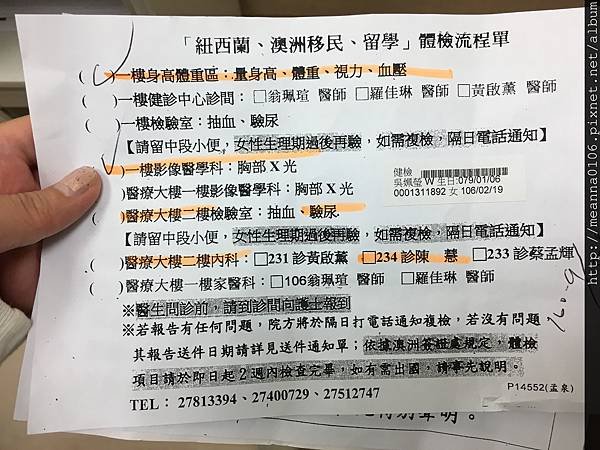 「紐西蘭、澳洲移民、留學」體檢流程單
( )一樓身高體重區：量身高、體重、視力、血壓
( )一樓健診中心診間：□翁珮瑄 醫師□羅佳琳 醫師□黃啟薰 醫師
( )一樓檢驗室：抽血、驗尿
【請留中段小便，女性生理期過後再驗，如需複檢，隔日電話通知】
)一樓影像醫學科：胸部X光
)醫療大樓一樓影像醫學科：胸部X光
( )醫療大樓二樓檢驗室：抽血、驗尿.
【請留中段小便，女性生理期過後再驗，如需複檢，隔日電話通知】
( )醫療大樓二樓內科：□231診黃啟薰 □234診陳 慧 □233診蔡孟輝
( )醫療大樓一樓家醫科：□106翁珮瑄 醫師 □羅佳琳 醫師
※醫生問診前，請到診間向護士報到
※若報告有任何問題，院方將於隔日打電話通知複檢，若沒有問題
其報告送件日期請詳見送件通知單；依據澳洲簽證處規定，體檢
項目請於即日起2週內檢查完畢，如有需出國，請事先說明。
TEL： 27813394、27400729、27512747
P14552(孟泉)
健檢
吳姵瑩 W 生日:079/01/06
0001311892 女 106/02/19
特別聲明。
http://meanna0106.pixnet.net/album